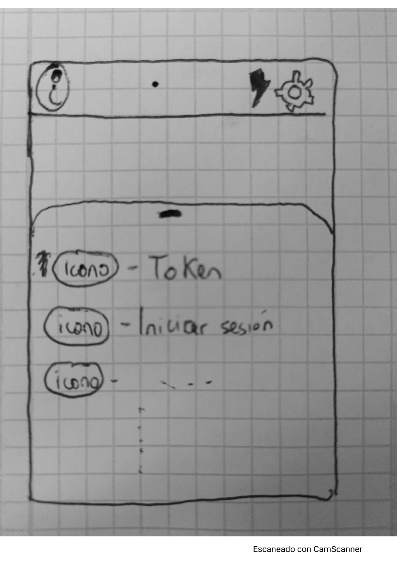 i
icono - Token
icono - Iniciar sesión
icono -
Escaneado con CamScanner